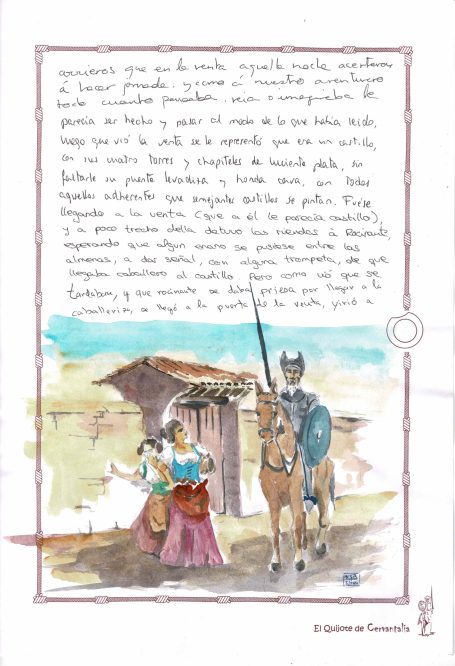 arrieros que en la venta aquella noche acertaron
á hacer jornada; y como á nuestro aventurero
todo cuanto pensaba, veia o imaginaba le
parecia ser hecho y pasar al modo de lo que habia leido,
luego que vió la venta se le representó que era un castillo,
con sus cuatro torres y chapiteles de luciente plata, sin
faltarle su puente levadiza y honda cava, con todos
aquellos adherentes que semejantes castillos se pintan. Fuese
llegando a la venta (que a él le parecia castillo),
y a poco trecho della detuvo las riendas à Rocinante,
esperando que algun enano se pusiese entre las
almenas, a dar señal, con alguna trompeta, de que
llegaba caballero al castillo. Pero como vió que se
tardaban, y que rocinante se daba priesa por llegar a la
caballeriza, se llegó a la puerta de la venta, y vió a
El Quijote de Cervantalia